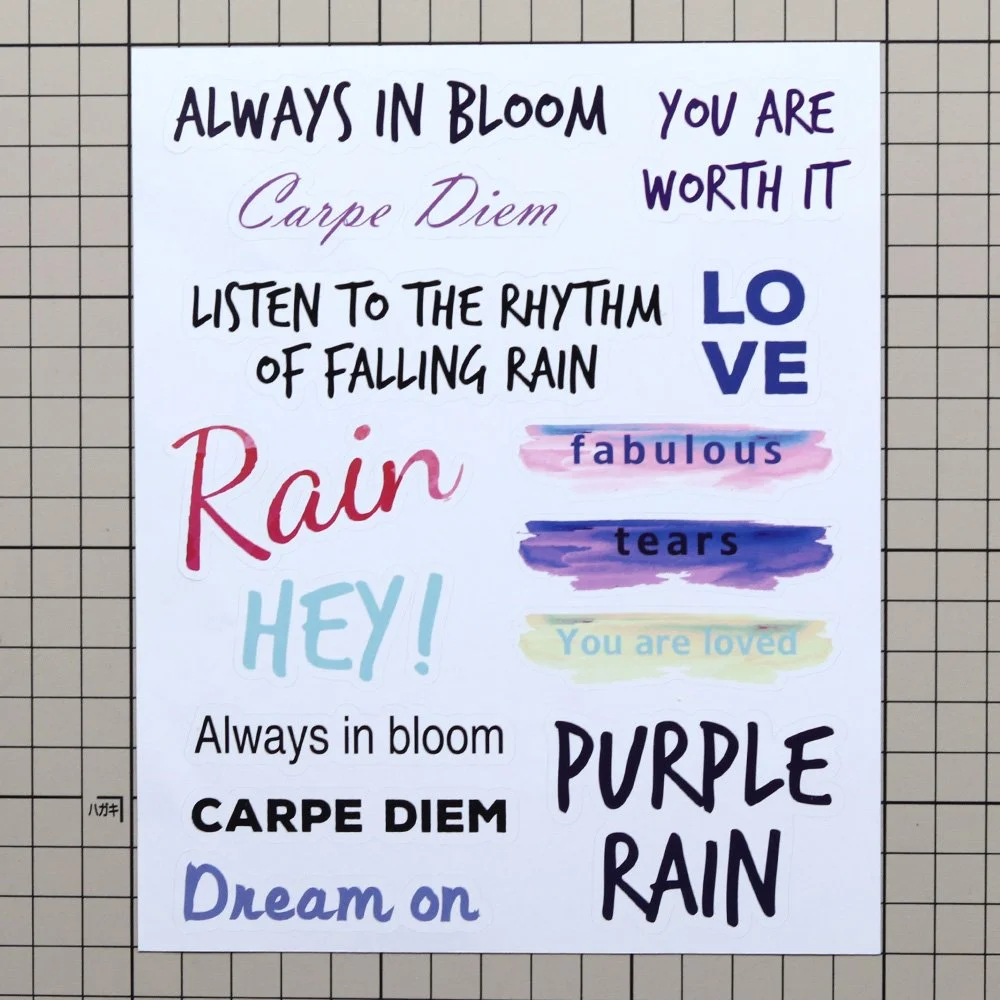 ALWAYS IN BLOOM
YOU ARE
WORTH IT
Carpe Diem
LISTEN TO THE RHYTHM
OF FALLING RAIN
LO
VE
Rain
fabulous
tears
HEY!
You are loved
Always in bloom
PURPLE
RAIN
CARPE DIEM
Dream on
ハガキ